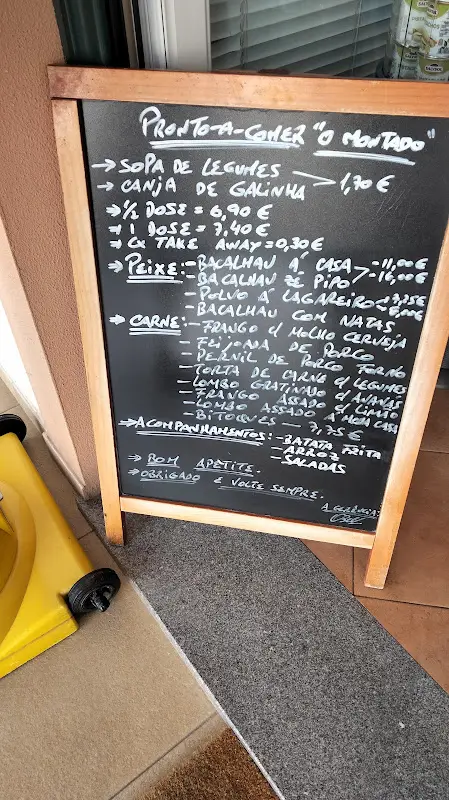 PRONTO-A-COMER "O MONTADO"
→ SOPA DE LEGUMES
→ CANJA DE GALINHA > 1,70 €
→ 1/2 DOSE = 6,90 €
→ 1 DOSE = 7,40 €
→ CX TAKE AWAY = 0,30 €
→ PEIXE: - BACALHAU Á CASA - 11,00€
- BACALHAU ZÉ PIPO - 16,00€
- POLVO Á LAGAREIRO
- BACALHAU COM NATAS
→ CARNE: - FRANGO C/ MOLHO CERVEJA
- FEIJOADA DE PORCO
- PERNIL DE PORCO FORNO
- TORTA DE CARNE C/ LEGUMES
- LOMBO GRATINADO C/ ANANÁS
- FRANGO ASSADO C/ LIMÃO
- LOMBO ASSADO Á MODA CASA
- BITOQUES - 7,75 €
→ ACOMPANHAMENTOS: - BATATA FRITA
- ARROZ
- SALADAS
→ BOM APETITE.
→ OBRIGADO E VOLTE SEMPRE.
A GERÊNCIA: